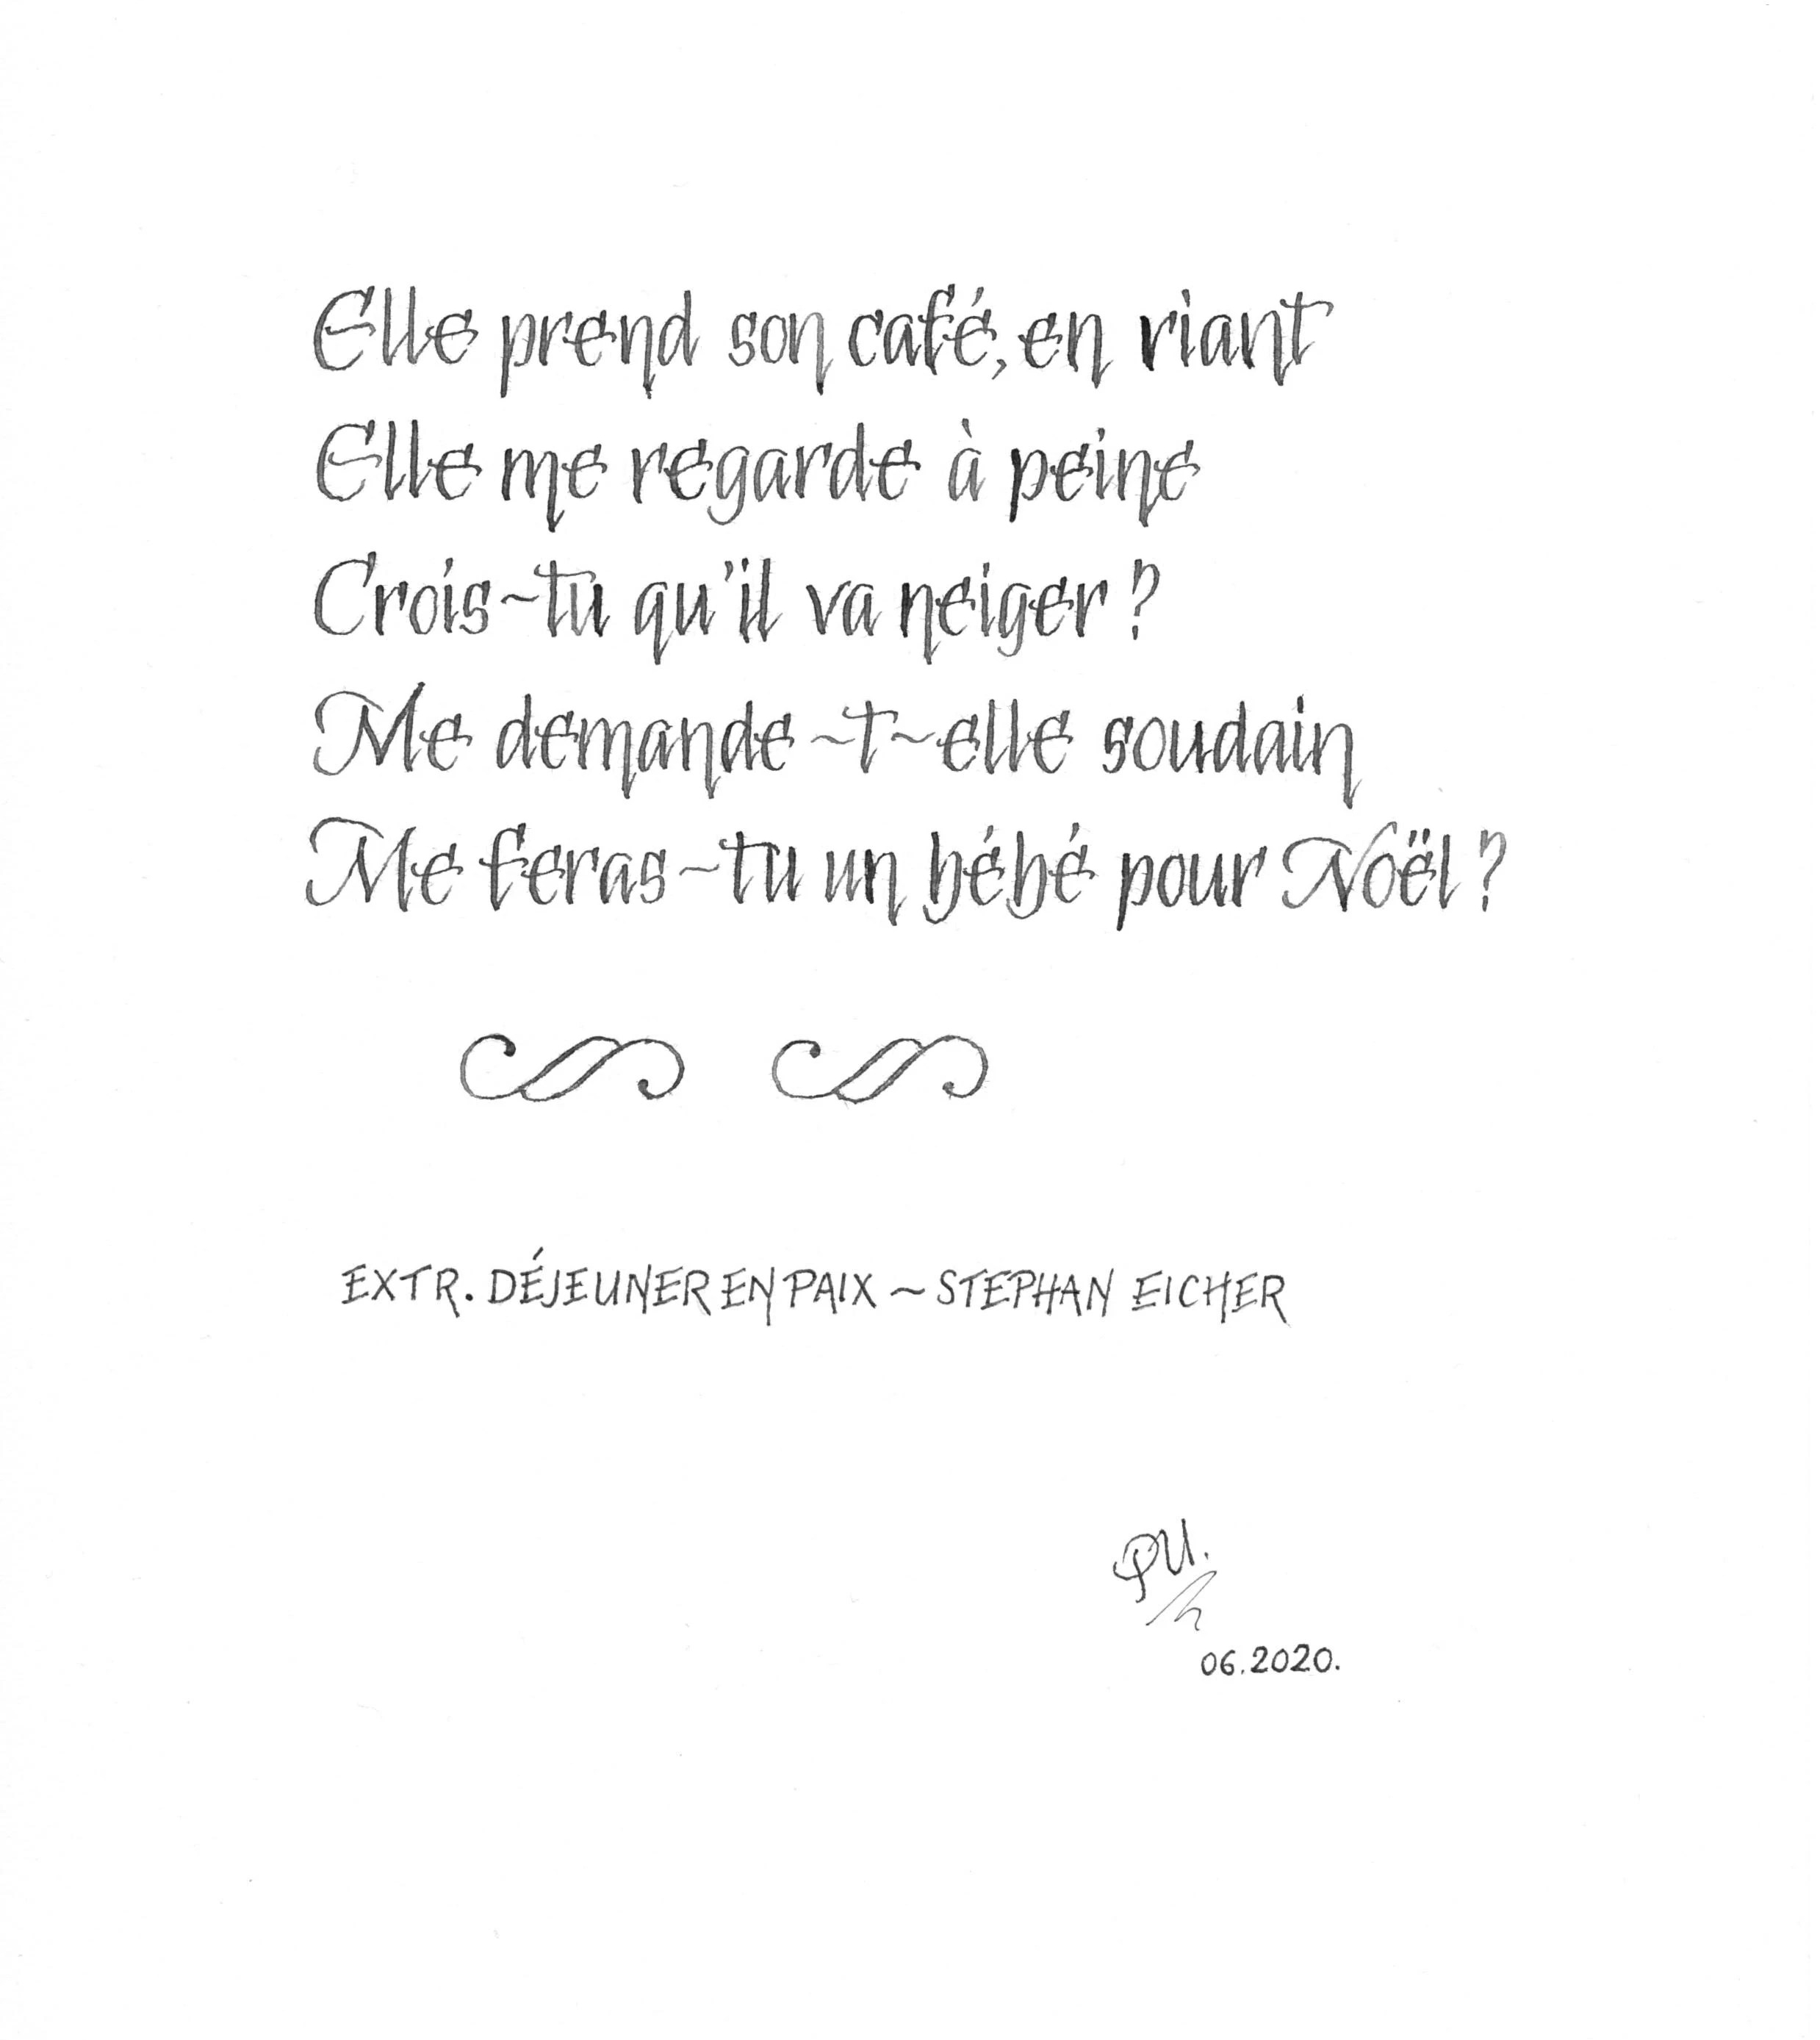 Elle prend son café, en riant
Elle me regarde à peine
Crois~tu qu'il va neiger ?
Me demande~t~elle soudain
Me feras~tu un bébé pour Noël ?
EXTR. DÉJEUNER EN PAIX ~ STEPHAN EICHER
06.2020.